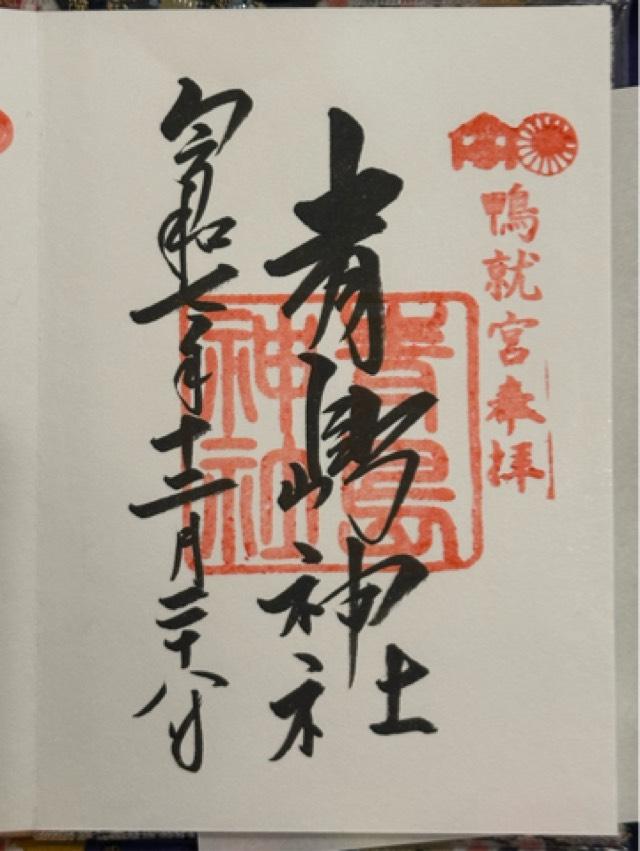 鴨就宮奉拝
青島神社
青島
神社
令和七年十二月二十八日